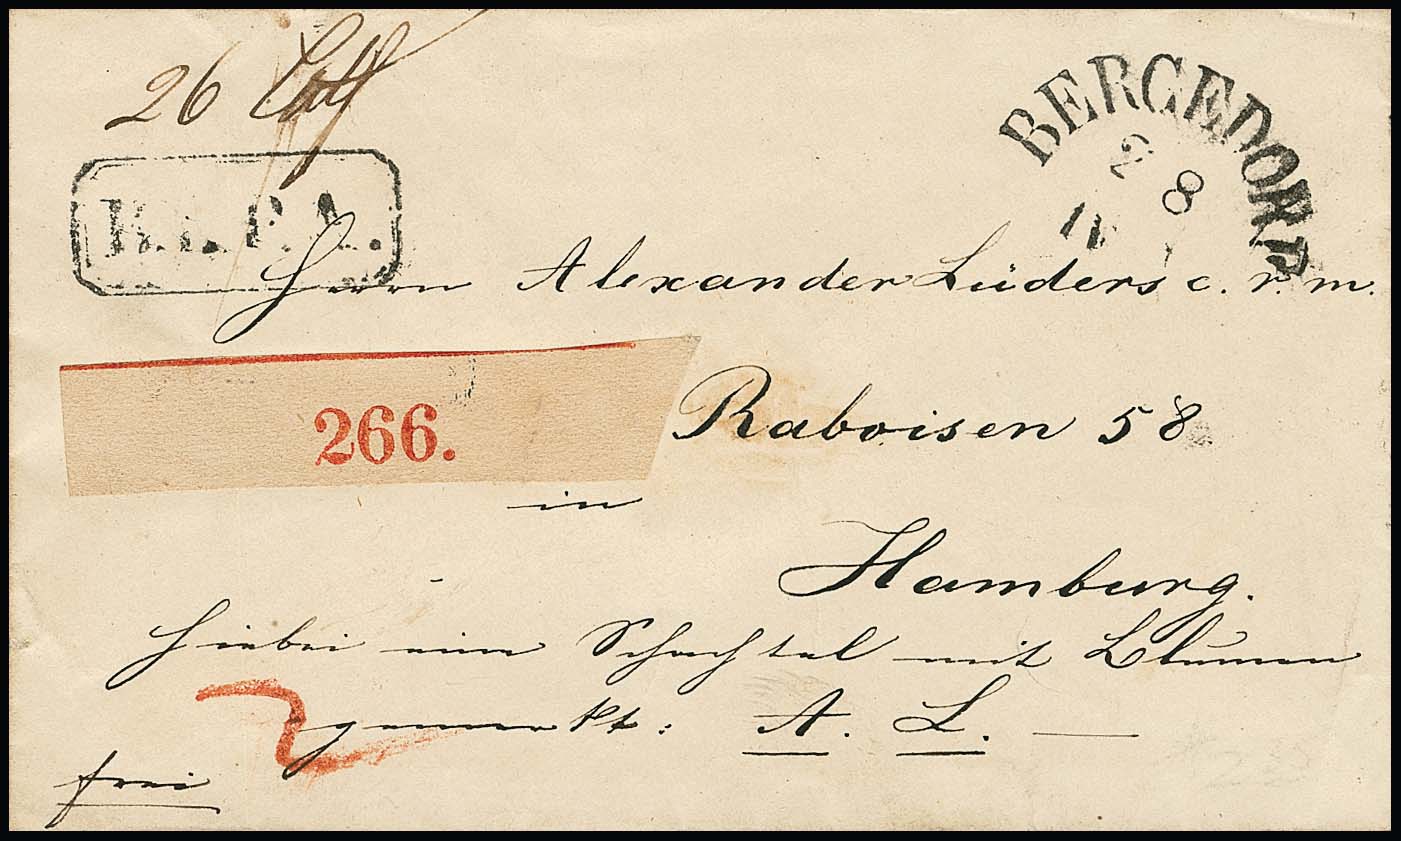 26 Loth
BERGEDORF
2 8
R. L. P. A.
Herrn Alexander Lüders c. r. m.
266.
Raboisen 58
in
Hamburg.
hiebei eine Schachtel mit Blumen
gemerkt: A. L. —
frei